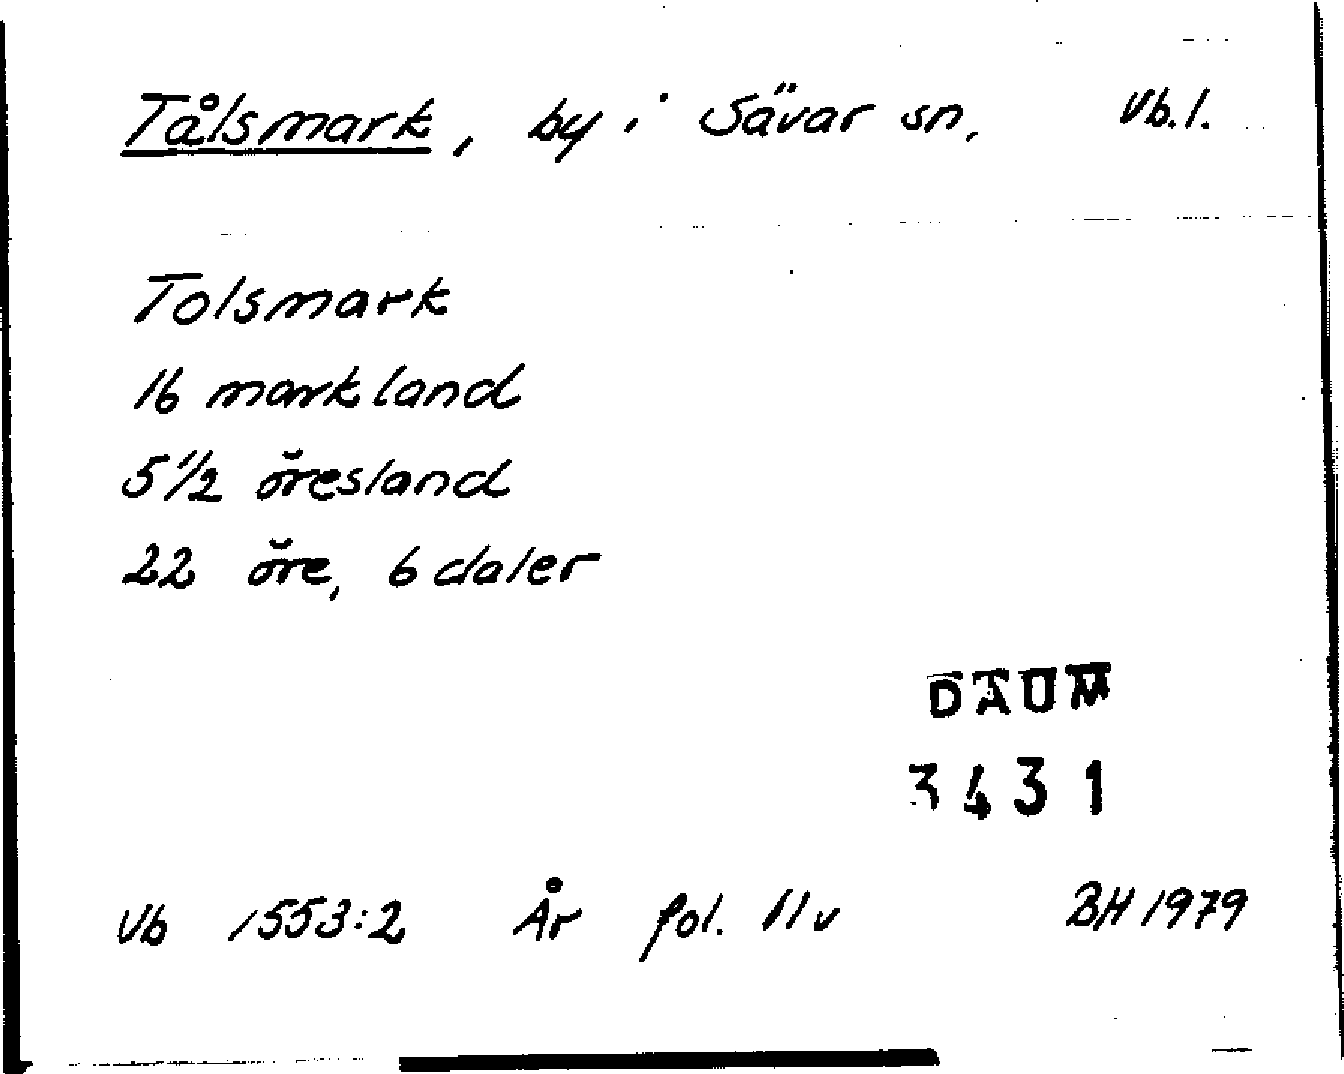 Tålsmark, by i Sävar sn, Vb.l.
Tolsmark
16 markland
5 1/2 öresland
22 öre, 6 daler
DAUM
3431
Vb 1553:2 År fol. 11v BH 1979